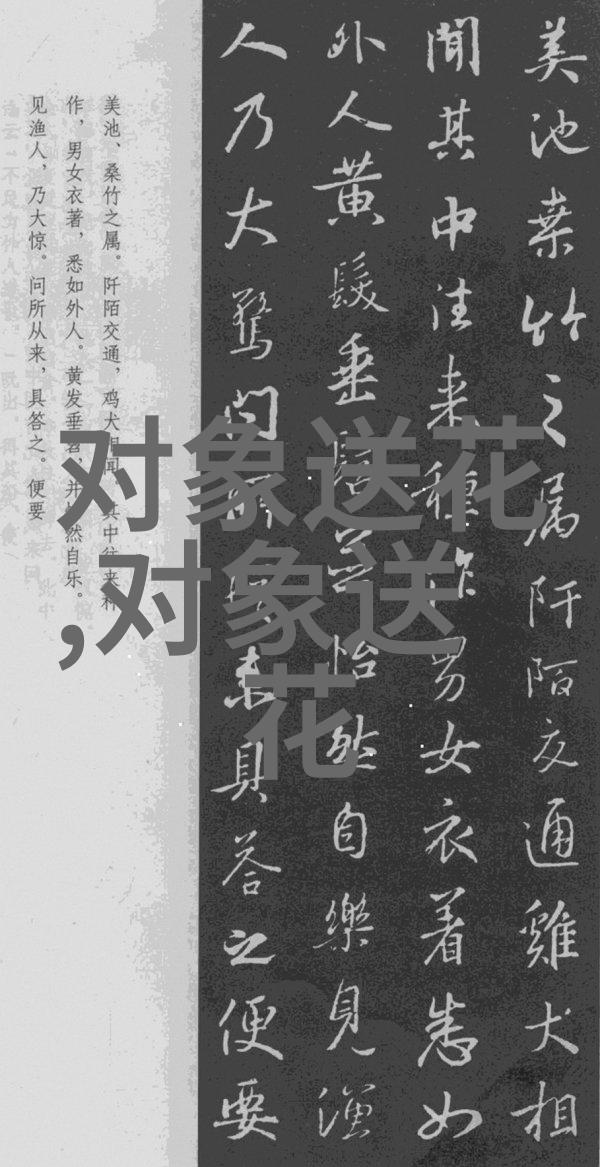 美池桒竹之属阡陌交通雞犬相
聞其中往来種作男女衣着悉如
外人黄髮垂髫並怡然自樂見漁
人乃大驚問所従来具答之便要
美池、桑竹之属。阡陌交通，鸡犬相闻。其中往来种
作，男女衣著，悉如外人。黄发垂髫，并怡然自乐。
见渔人，乃大惊。问所从来，具答之。便要
对象送花
,对象送
花